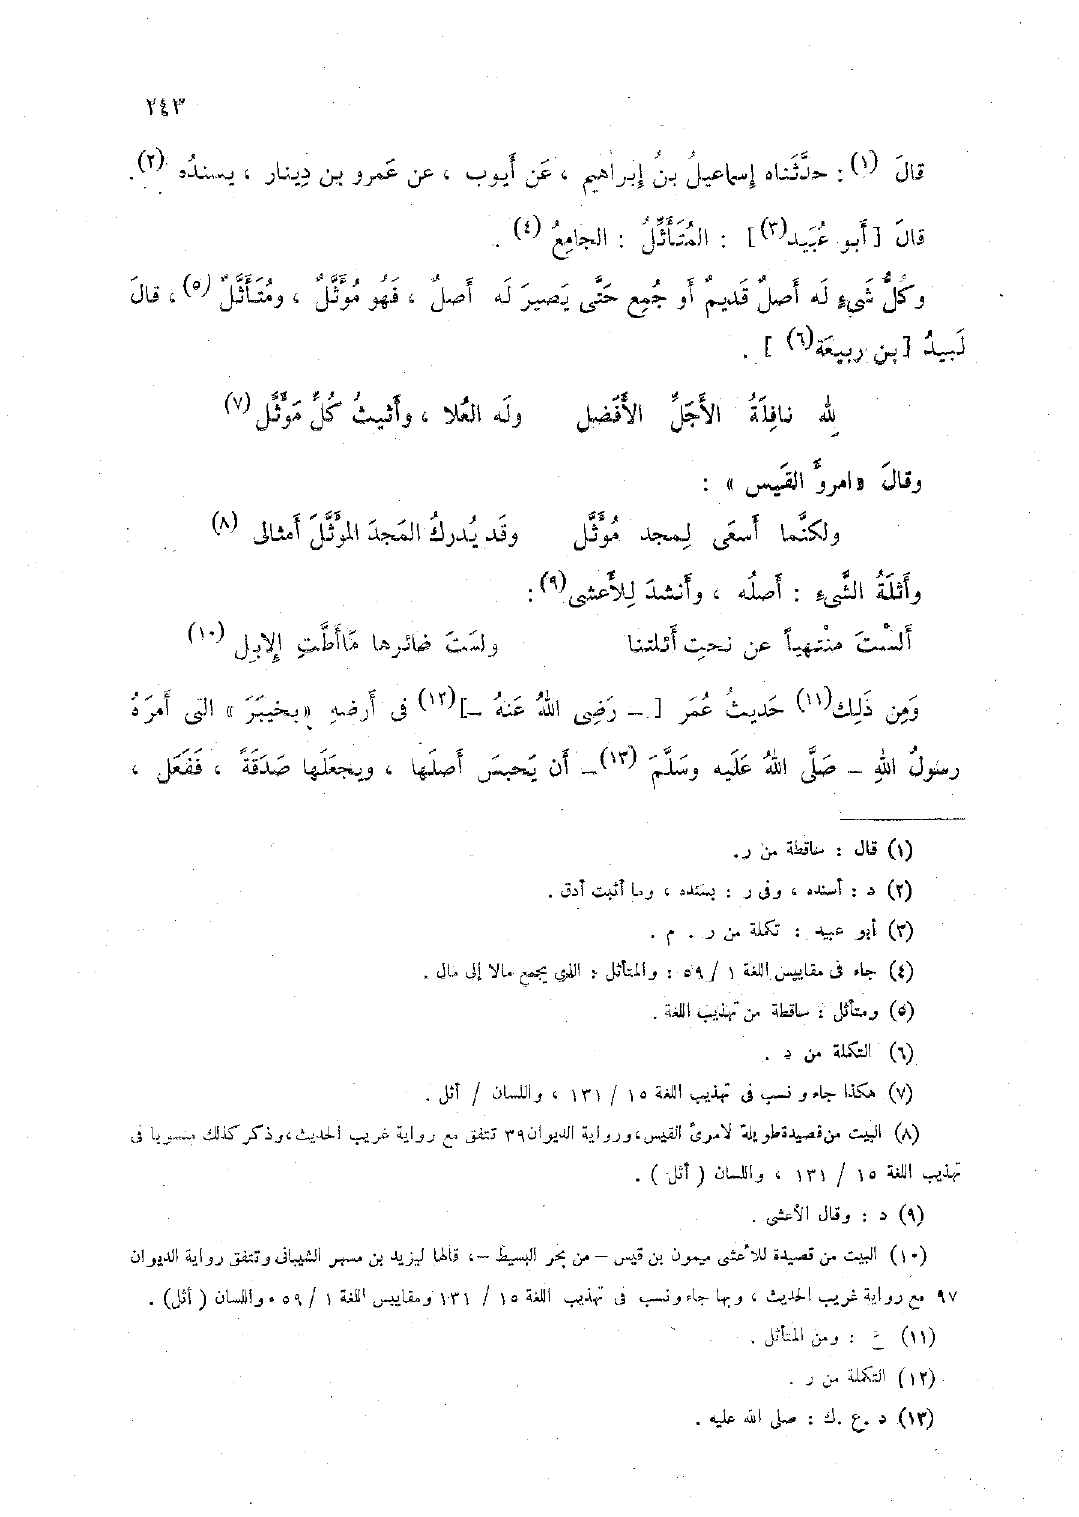 ٢٤٣
قالَ (١) : حدَّثَناه إسماعيلُ بنُ إبراهيم ، عَن أَيوب ، عن عَمرو بن دِينار ، يسندُه (٢).
قالَ [ أَبو عُبَيد(٣)] : المُتَأَثِّلُ : الجامِعُ (٤) .
وكُلُّ شَىءٍ لَه أَصلٌ قَديمٌ أَو جُمِع حَتَّى يَصيرَ لَه أَصلٌ ، فَهُو مُؤَثَّلٌ ، ومُتَأَثَّلٌ (٥) ، قالَ
لَبيدُ [ بن ربيعَة(٦) ] .
لِلهِ نافِلَةُ الأَجَلِّ الأَفَضل ولَه العُلا ، وأَثيثُ كُلِّ مَوْثَّل (٧)
وقالَ « امروُّ القَيس » :
ولكنَّما أَسعَى لِمجد مُؤَثَّل وقَد يُدركُ المَجدَ المؤثَّلَ أَمثالى (٨)
وأَثلَةُ الشَّىءِ : أَصلُه ، وأَنشدَ لِلأَعشى(٩) :
أَلسْتَ منْتهياً عن نحتِ أَثلتنا ولستَ ضائرها مَاأَطَّتِ الإبل (١٠)
وَمِن ذَلِك(١١) حَديثُ عُمَر [ ــ رَضِى اللهُ عَنهُ ــ](١٢) فى أَرضهِ «بخيبَرَ» التى أَمرَهُ
رسولُ اللهِ ــ صَلَّى اللهُ عَلَيه وسَلَّمَ (١٣)ــ أَن يَحبِسَ أَصلَها ، ويجعَلَها صَدَقَةً ، فَفَعَل ،
(١) قال : ساقطة من ر.
(٢) د : أسنده ، وفى ر : بسنده ، وما أثبت أدق .
(٣) أبو عبيد : تكملة من ر . م .
(٤) جاء فى مقاييس اللغة ١ / ٥٩ : والمتأثل : الذي يجمع مالا إلى مال .
(٥) ومتأثل : ساقطة من تهذيب اللغة .
(٦) التكملة من د .
(٧) هكذا جاء و نسب فى تهذيب اللغة ١٥ / ١٣١ ، واللسان / أثل .
(٨) البيت من قصيدة طويلة لامرئ القيس، ورواية الديوان ٣٩ تتفق مع رواية غريب الحديث، وذكر كذلك منسوبا فى
تهذيب اللغة ١٥ / ١٣١ ، واللسان ( أثل ) .
(٩) د : وقال الأعشى .
(١٠) البيت من قصيدة للأعشى ميمون بن قيس – من بحر البسيط –، قالها ليزيد بن مسهر الشيبانى وتتفق رواية الديوان
٩٧ مع رواية غريب الحديث ، وبها جاء ونسب فى تهذيب اللغة ١٥ / ١٣١ ومقاييس اللغة ١ / ٥٩ ، واللسان ( أثل) .
(١١) ع : ومن المتأثل .
(١٢) التكملة من ر .
(١٣) د .ع .ك : صلى الله عليه .